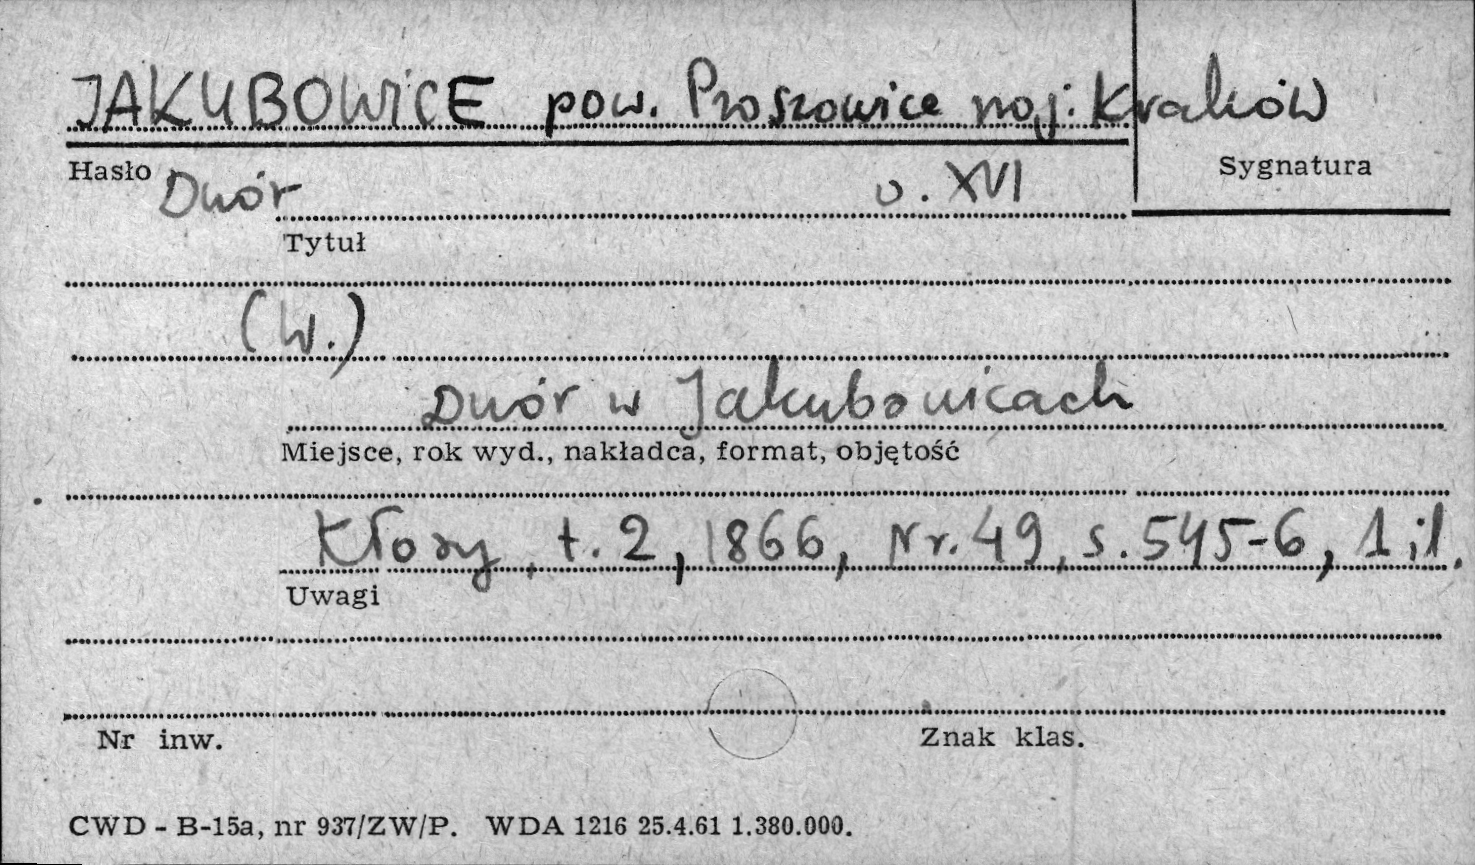 JAKUBOWICE pow. Proszowice woj. Kraków
Hasło
Sygnatura
Dwór w. XVI
Tytuł
(W.)
Dwór w Jakubowicach
Miejsce, rok wyd., nakładca, format, objętość
Kłosy, t. 2, 1866, Nr. 49, s. 545-6, 1 il.
Uwagi
Nr inw.
Znak klas.
CWD - B-15a, nr 937/ZW/P. WDA 1216 25.4.61 1.380.000.